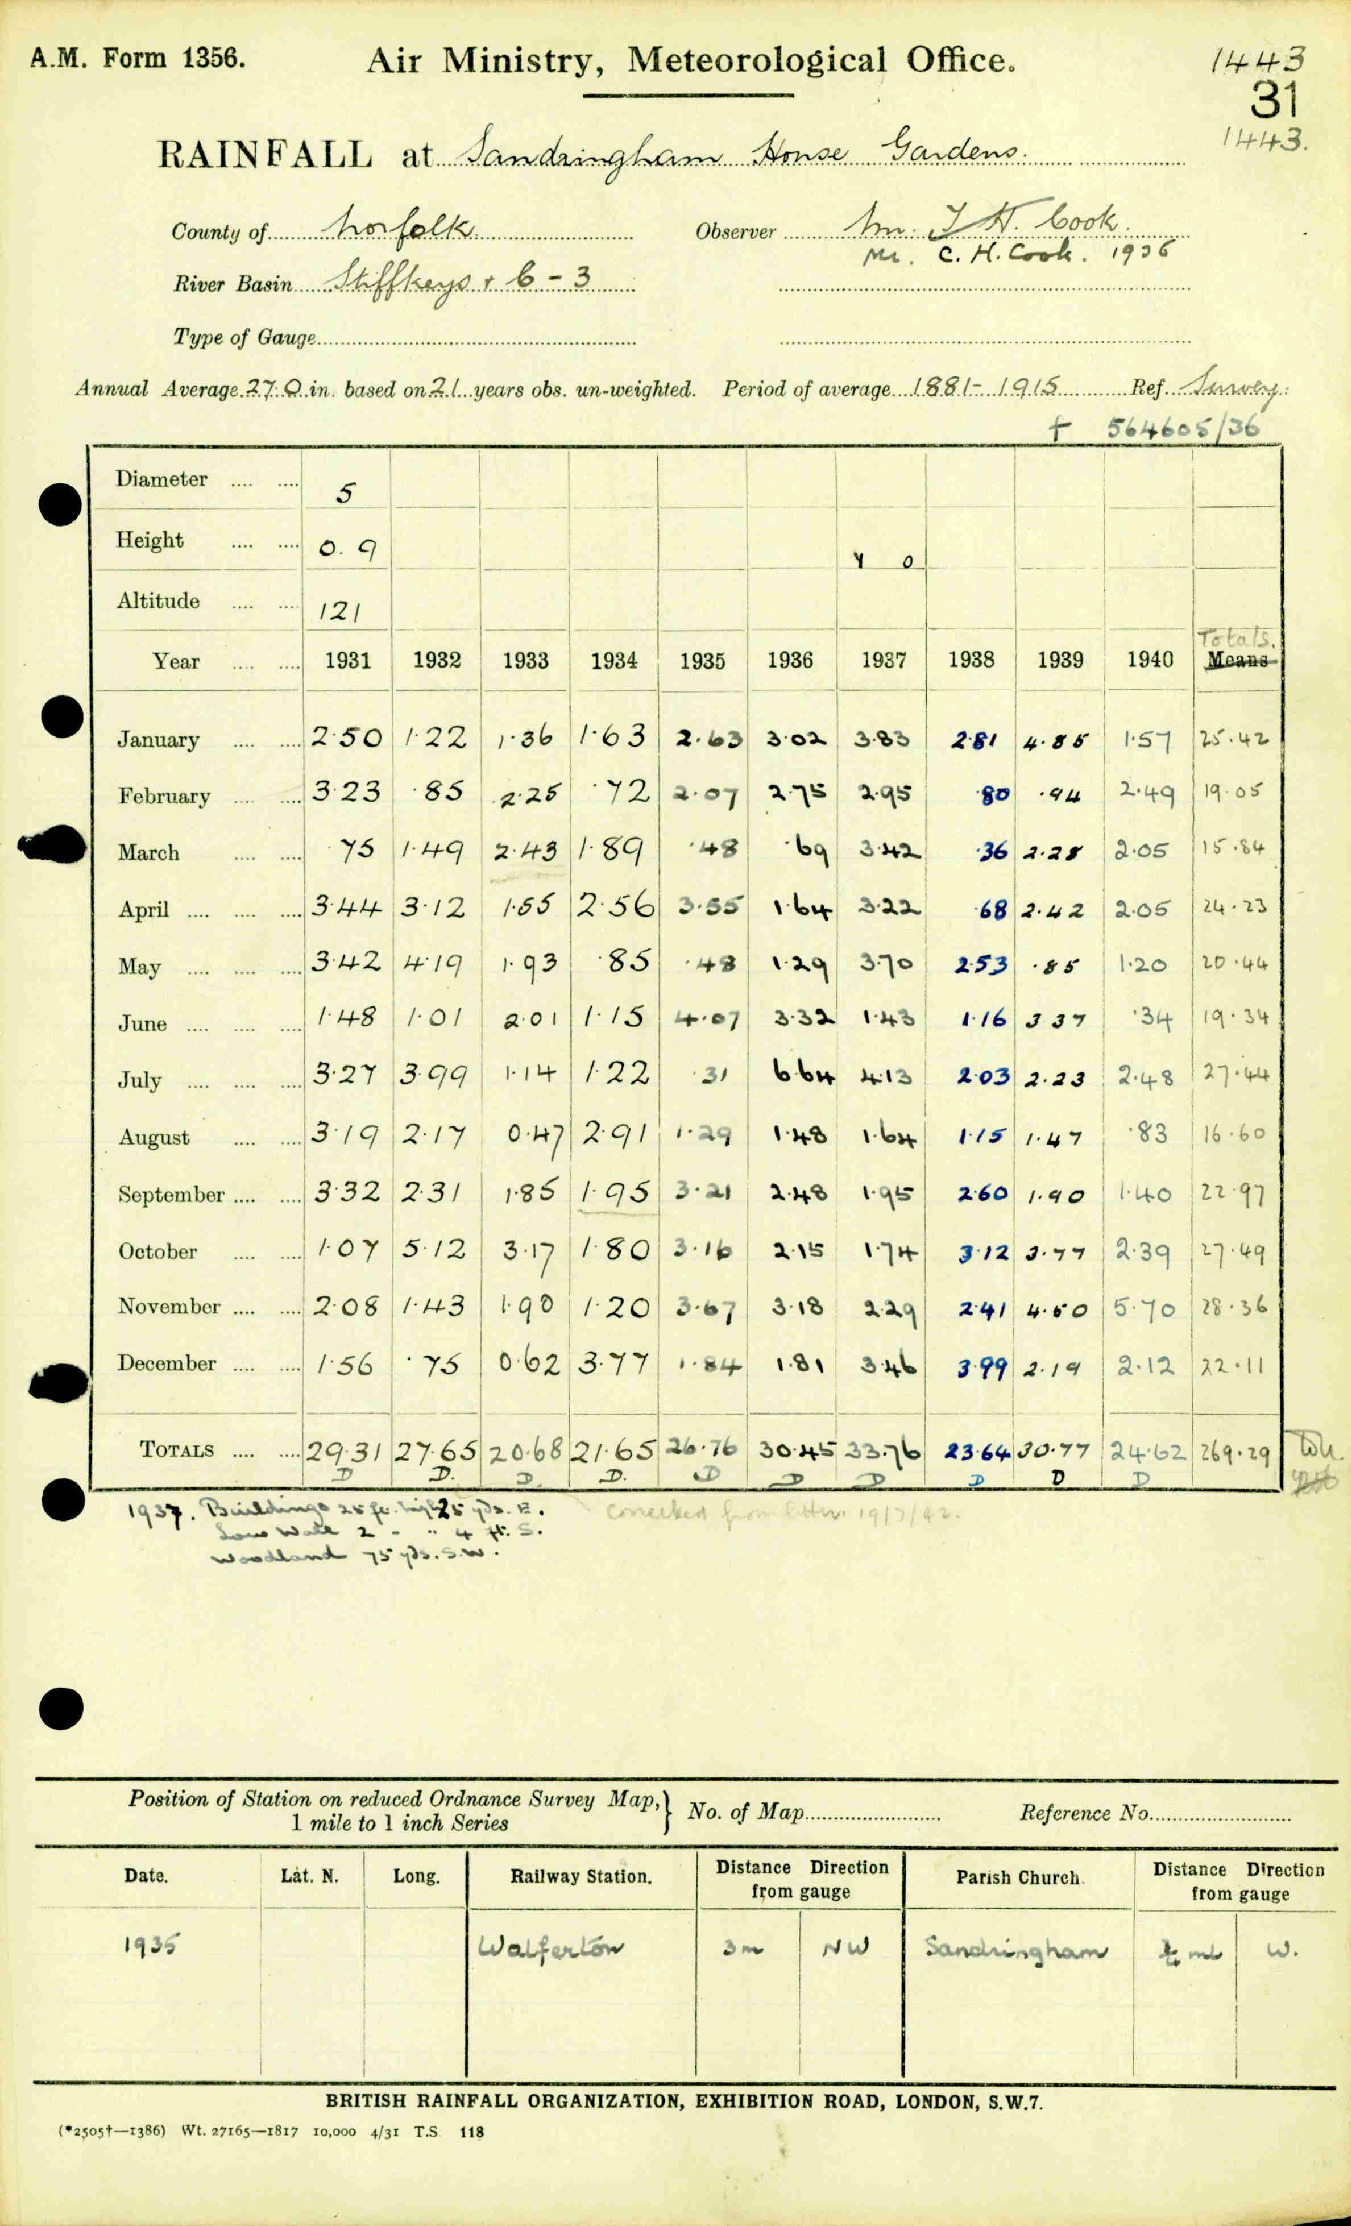 A.M. Form 1356. Air Ministry, Meteorological Office. 1443
31
1443.
RAINFALL at Sandringham House Gardens.
County of Norfolk. Observer Mr. J H. Cook.
Mr. C. H. Cook. 1936
River Basin Stiffkeys + 6 - 3
Type of Gauge
Annual Average 27.0 in. based on 21 years obs. un-weighted. Period of average 1881-1915 Ref. Survey:
† 564605/36
Diameter 5
Height 0.9
Altitude 121
Totals.
Year 1931 1932 1933 1934 1935 1936 1937 1938 1939 1940 Means
January 2.50 1.22 1.36 1.63 2.63 3.02 3.83 2.81 4.85 1.57 25.42
February 3.23 .85 2.25 .72 2.07 2.75 2.95 .80 .94 2.49 19.05
March .75 1.49 2.43 1.89 .48 .69 3.42 .36 2.28 2.05 15.84
April 3.44 3.12 1.55 2.56 3.55 1.64 3.22 .68 2.42 2.05 24.23
May 3.42 4.19 1.93 .85 .48 1.29 3.70 2.53 .85 1.20 20.44
June 1.48 1.01 2.01 1.15 4.07 3.32 1.43 1.16 3.37 .34 19.34
July 3.27 3.99 1.14 1.22 .31 6.64 4.13 2.03 2.23 2.48 27.44
August 3.19 2.17 0.47 2.91 1.29 1.48 1.64 1.15 1.47 .83 16.60
September 3.32 2.31 1.85 1.95 3.21 2.48 1.95 2.60 1.90 1.40 22.97
October 1.07 5.12 3.17 1.80 3.16 2.15 1.74 3.12 3.77 2.39 27.49
November 2.08 1.43 1.90 1.20 3.67 3.18 2.29 2.41 4.50 5.70 28.36
December 1.56 .75 0.62 3.77 1.84 1.81 3.46 3.99 2.19 2.12 22.11
TOTALS 29.31 27.65 20.68 21.65 26.76 30.45 33.76 23.64 30.77 24.62 269.29
D D. D. D. D D D D D D
1937. Buildings 25 ft. high 25 yds. E.
Low Wall 2 - " 4 ft. S.
Woodland 75 yds. S.W.
Corrected from letter 19/7/42.
Position of Station on reduced Ordnance Survey Map, No. of Map Reference No.
1 mile to 1 inch Series
Date. Lat. N. Long. Railway Station. Distance Direction from gauge Parish Church. Distance Direction from gauge
1935 Wolferton 3m NW Sandringham ¼ ml W.
BRITISH RAINFALL ORGANIZATION, EXHIBITION ROAD, LONDON, S.W.7.
(*2505†—1386) Wt. 27165—1817 10,000 4/31 T.S. 118